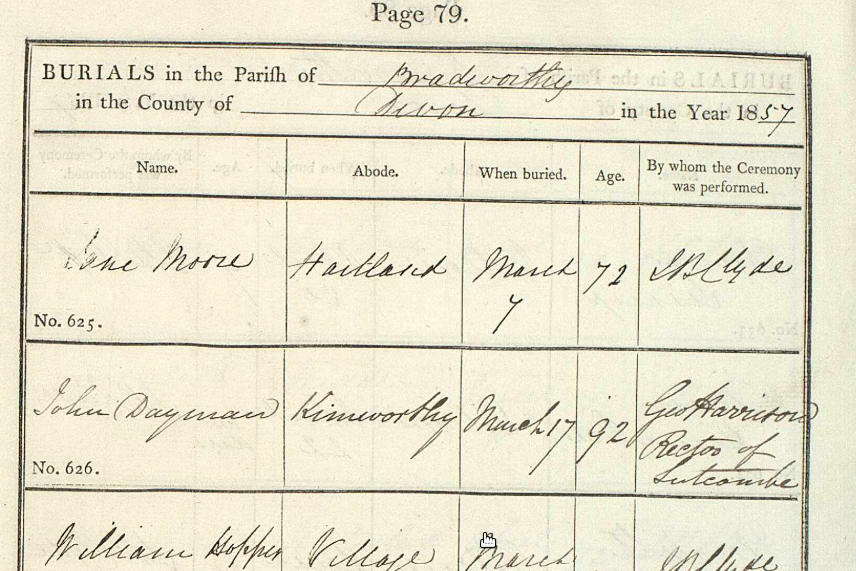 Page 79.
BURIALS in the Parish of Bradworthy
in the County of Devon in the Year 1857
Name. Abode. When buried. Age. By whom the Ceremony was performed.
Jane Moore Hartland March 7 72 J B Clyde
No. 625.
John Dayman Kimworthy March 17 92 Geo Harrison
Rector of
Sutcombe
No. 626.
William Hopper Village March J B Clyde